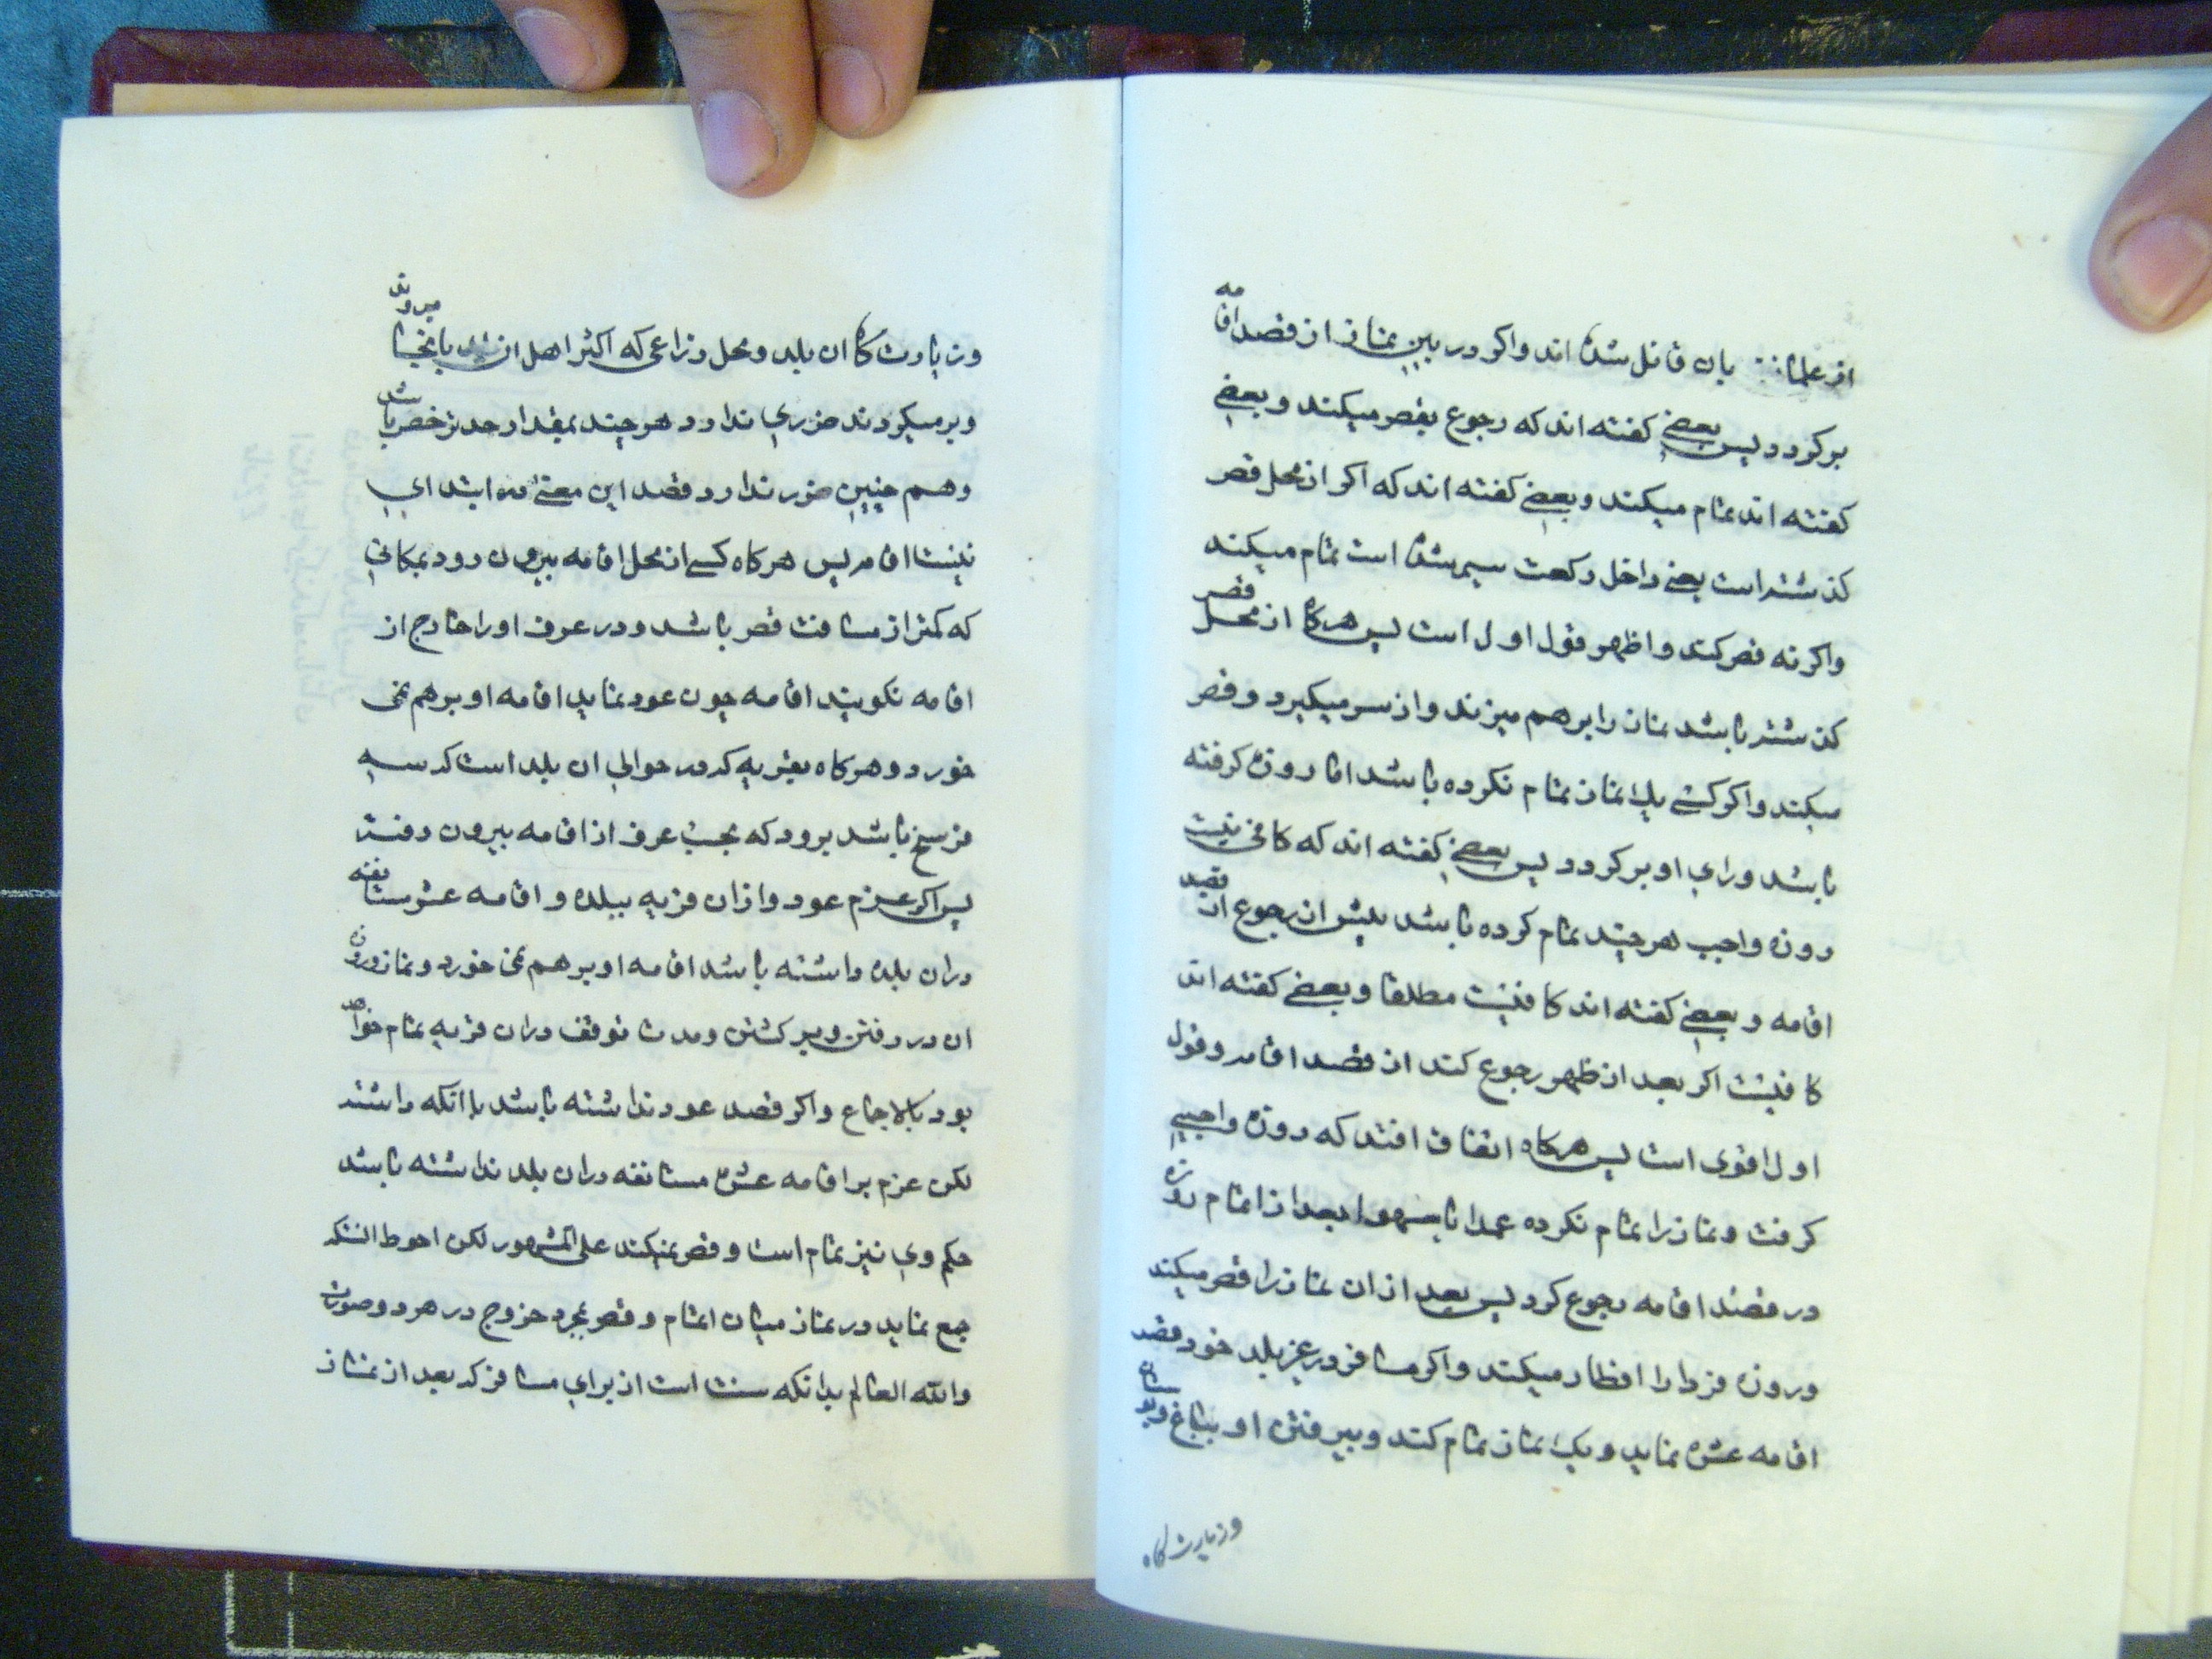 از علما بان قائل شده اند واکر در بین نماز از قصد اقامه
برکردد پس بعضی کفته اند که رجوع بقصر میکند و بعضی
کفته اند تمام میکند و بعضی کفته اند که اکر از محل قصر
کذشته است یعنی داخل رکعت سیم شده است تمام میکند
واکرنه قصر کند و اظهر قول اول است پس هرکاه از محل قصر
کذشته باشد نماز را برهم میزند و از سر میکیرد و قصر
میکند واکر کسی یک نماز تمام نکرده باشد اما روزه کرفته
باشد و رای او برکردد پس بعضی کفته اند که کافی نیست
روزه واجب هرچند تمام کرده باشد پیش از رجوع از قصد
اقامه و بعضی کفته اند کافیست مطلقا و بعضی کفته اند
کافیست اکر بعد از ظهر رجوع کند از قصد اقامه و قول
اول اقوی است پس هرکاه اتفاق افتد که روزه واجبی
کرفت و نماز را تمام نکرده عمدا یا سهوا و بعد از اتمام روزه
در قصد اقامه رجوع کرد پس بعد از ان نماز را قصر میکند
و روزه فردا را افطار میکند واکر مسافر در غیر بلد خود قصد
اقامه عشره نماید و یک نماز تمام کند و بیرفتن او بباغ و بوستان
وزیارت کاه
وزیارت کاه ان بلد و محل زراعی که اکثر اهل ان بلد بانجا میروند
و برمیکردند ضرری ندارد هرچند بمقدار حد ترخص باشد
وهم چنین ضرر ندارد قصد این معنی در ابتدای
نیت اقامه پس هرکاه کسی از محل اقامه بیرون رود بمکانی
که کمتر از مسافت قصر باشد و در عرف او را خارج از
اقامه نکویند اقامه چون عود نماید اقامه او برهم نمی
خورد و هرکاه بقریه که در حوالی ان بلد است که سه
فرسخ باشد برود که بحسب عرف از اقامه بیرون رفته
پس اکر عزم عود از ان قریه ببلده و اقامه عشر مستانفه
در ان بلده داشته باشد اقامه او برهم نمی خورد و نماز و روزه
ان در رفتن و برکشتن و مدت توقف در ان قریه تمام خواهد
بود بالاجماع واکر قصد عود نداشته باشد یا انکه داشته
لکن عزم بر اقامه عشره مستانفه در ان بلد نداشته باشد
حکم وی نیز تمام است و قصر نمیکند علی المشهور لکن احوط انستکه
جمع نماید در نماز میان اتمام و قصر بمجرد خروج در هر دو صورت
والله العالم بدانکه سنت است از برای مسافر که بعد از نماز